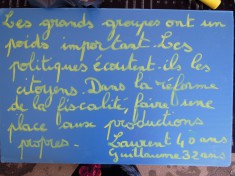 Les grands groupes ont un
poids important. Les
politiques écoutent-ils les
citoyens. Dans la réforme
de la fiscalité, faire une
place aux productions
propres.
Laurent 40 ans
Guillaume 32 ans